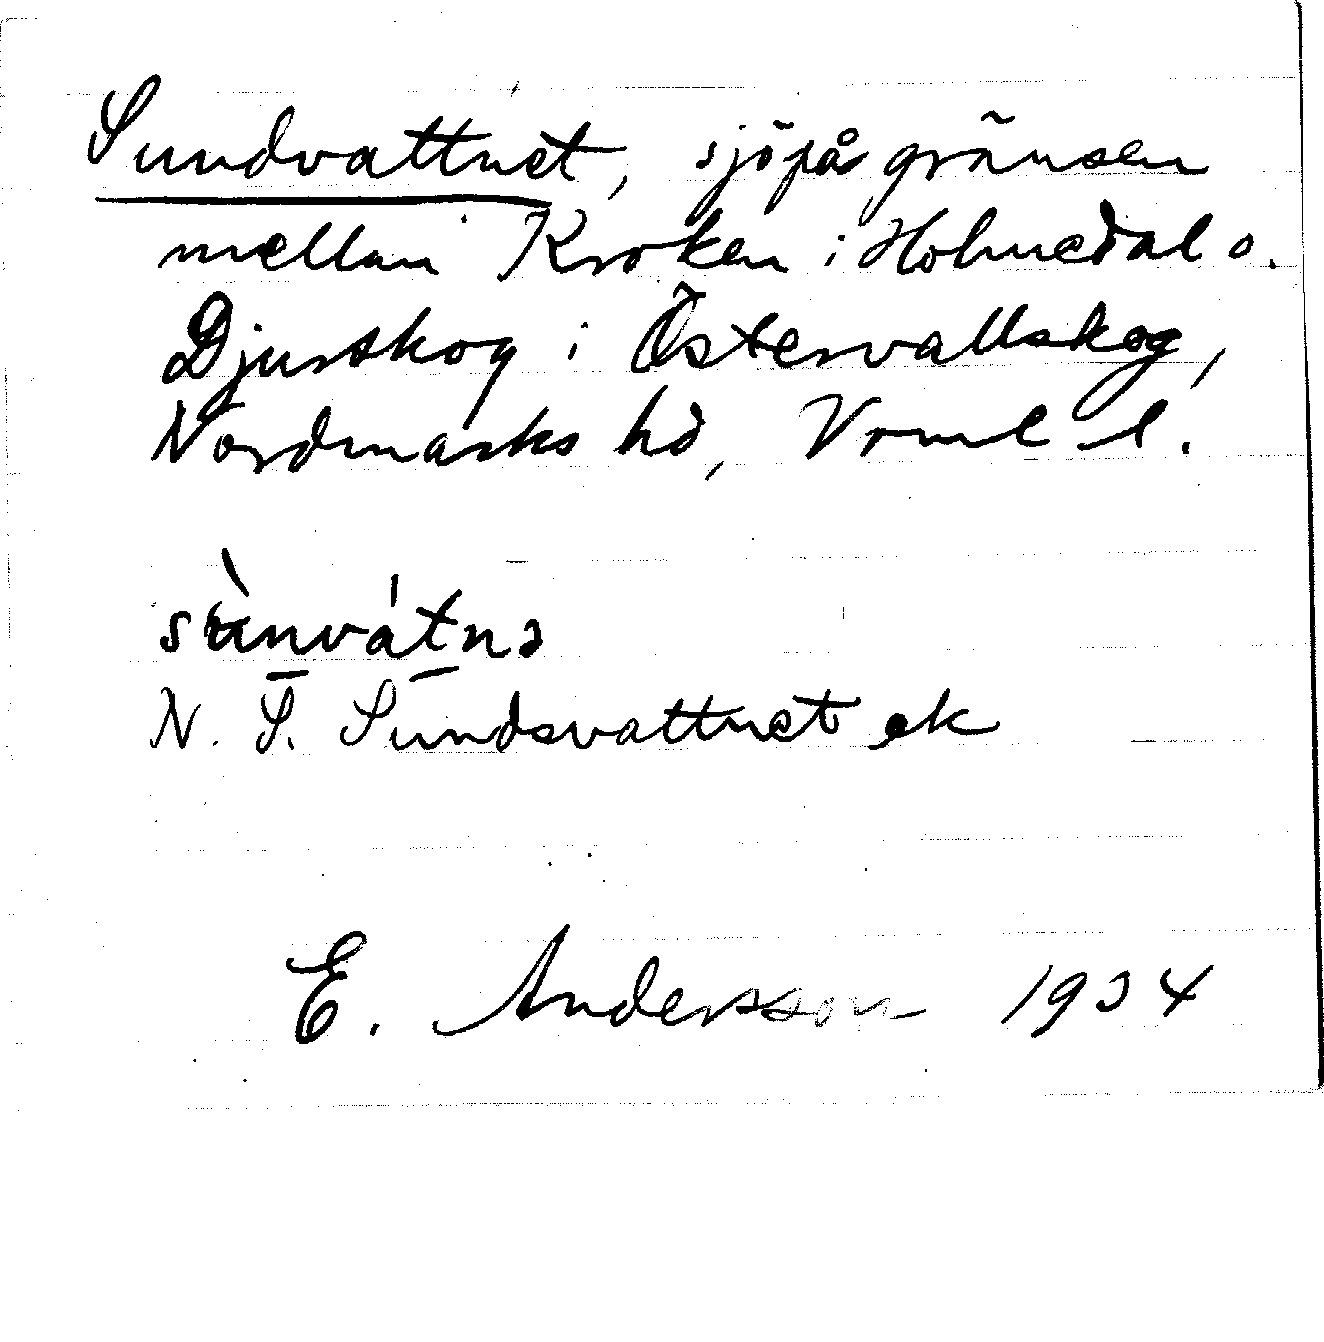 Sundvattnet, sjö på gränsen
mellan Kroken i Holmedal o.
Djurskog i Östervallskog,
Nordmarks hd, Vrml l.
sànvátnə
N. S. Sundsvattnet ek
E. Andersson 1934